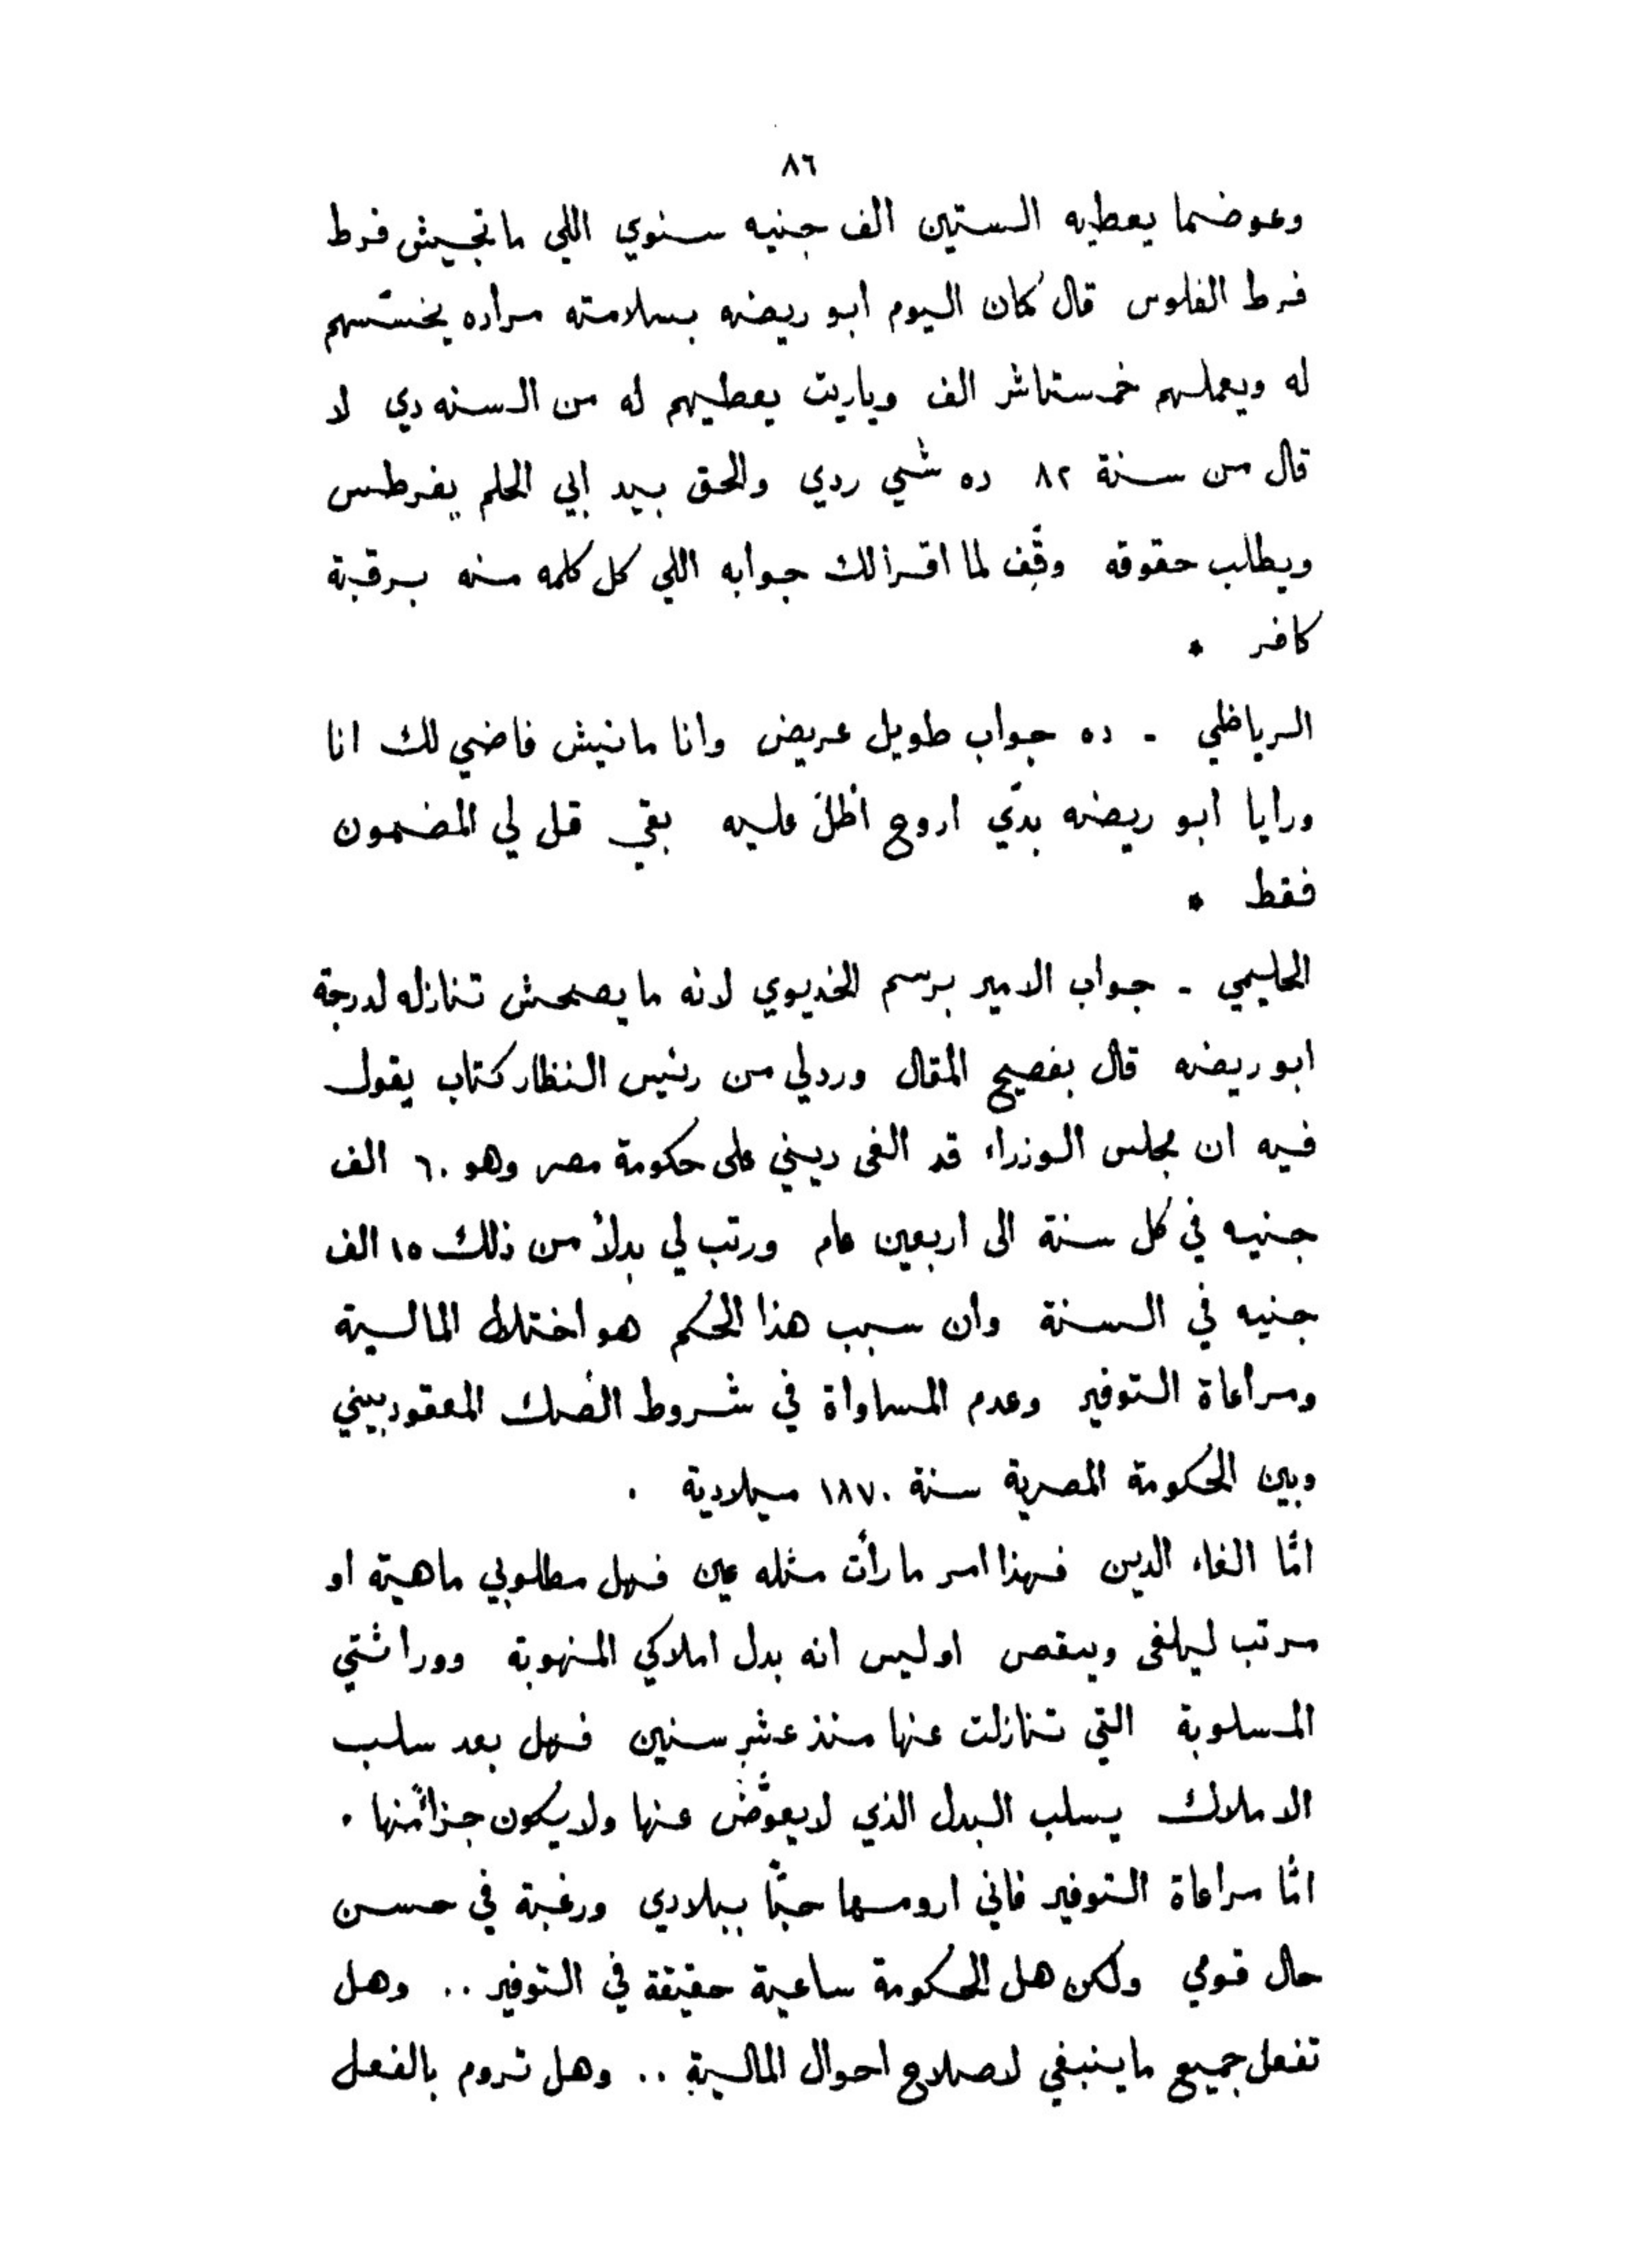 ٨٦
وعوضما يعطيه الستين الف جنيه سنوي اللي ما تجيش فرط
فرط الفلوس قال كمان اليوم ابو ريضه بسلامته مراده يخستسهم
له ويعملهم خمستاشر الف وياريت يعطيهم له من السنه دي لا
قال من سنة ٨٢ ده شي ردي والحق بيد ابي الحلم يفرطس
ويطالب حقوقه وقِف لما اقرا لك جوابه اللي كل كلمه منه برقبة
كافر *
الرياظي - ده جواب طويل عريض وانا مانيش فاضي لك انا
ورايا ابو ريضه بدّي اروح اظلّ عليه بقي قل لي المضمون
فقط *
الحليمي - جواب الامير برسم الخديوي لانه ما يصحش تنازله لدرجة
ابو ريضه قال بفصيح المقال وردلي من رئيس النظار كتاب يقول
فيه ان مجلس الوزراء قد الغى ديني على حكومة مصر وهو ٦٠ الف
جنيه في كل سنة الى اربعين عام ورتب لي بدلاً من ذلك ١٥ الف
جنيه في السنة وان سبب هذا الحكم هو اختلال المالية
ومراعاة التوفير وعدم المساواة في شروط الصك المعقود بيني
وبين الحكومة المصرية سنة ١٨٧٠ ميلادية .
امّا الغاء الدين فهذا امر ما رأت مثله عين فهل مطلوبي ماهية او
مرتب ليلغى وينقص اوليس انه بدل املاكي المنهوبة ووراثتي
المسلوبة التي تنازلت عنها منذ عشر سنين فهل بعد سلب
الاملاك يسلب البدل الذي لا يعوّض عنها ولا يكون جزأ منها .
امّا مراعاة التوفير فاني ارومها حبّا ببلادي ورغبة في حسن
حال قومي ولكن هل الحكومة ساعية حقيقة في التوفير .. وهل
تفعل جميع ما ينبغي لاصلاح احوال المالية .. وهل تروم بالفعل